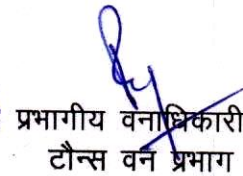 प्रभागीय वनाधिकारी
टौन्स वन प्रभाग